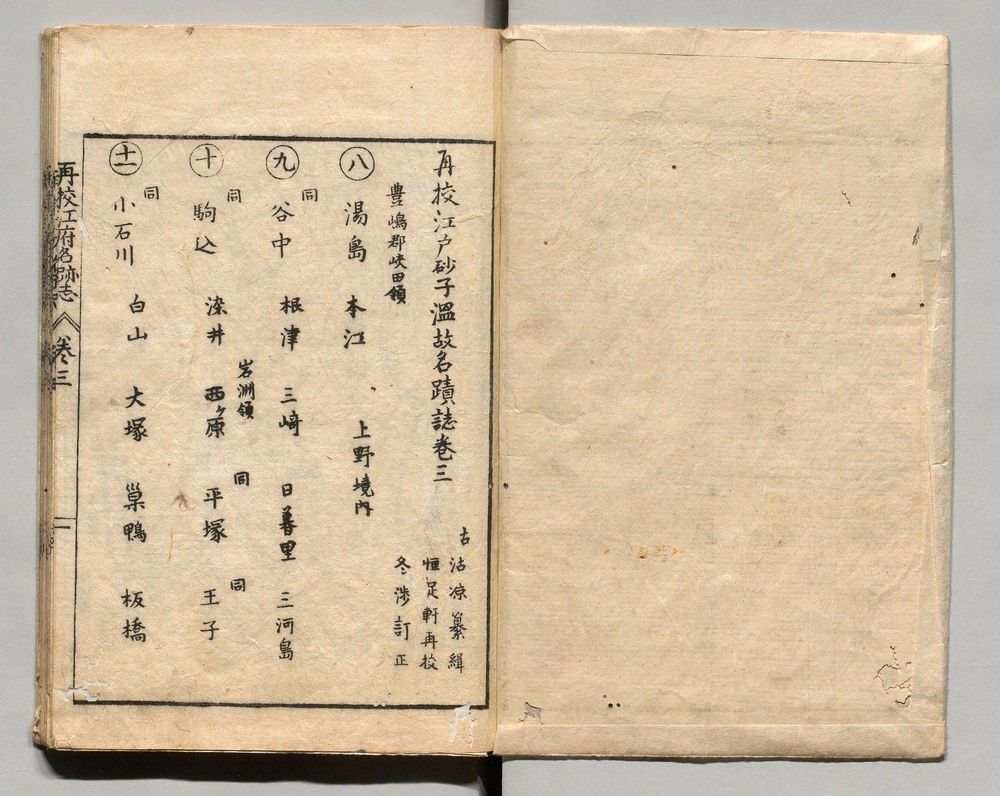 再挍江戸砂子温故名蹟誌巻三
古 沾凉纂緝
恒足軒再挍
冬渉訂正
豊嶋郡峡田領
八 湯島 本江 上野境内
同
九 谷中 根津 三崎 日暮里 三河島
同 岩淵領 同 同
十 駒込 染井 西ヶ原 平塚 王子
同
十一 小石川 白山 大塚 巣鴨 板橋
再挍江府名跡志 巻三 一